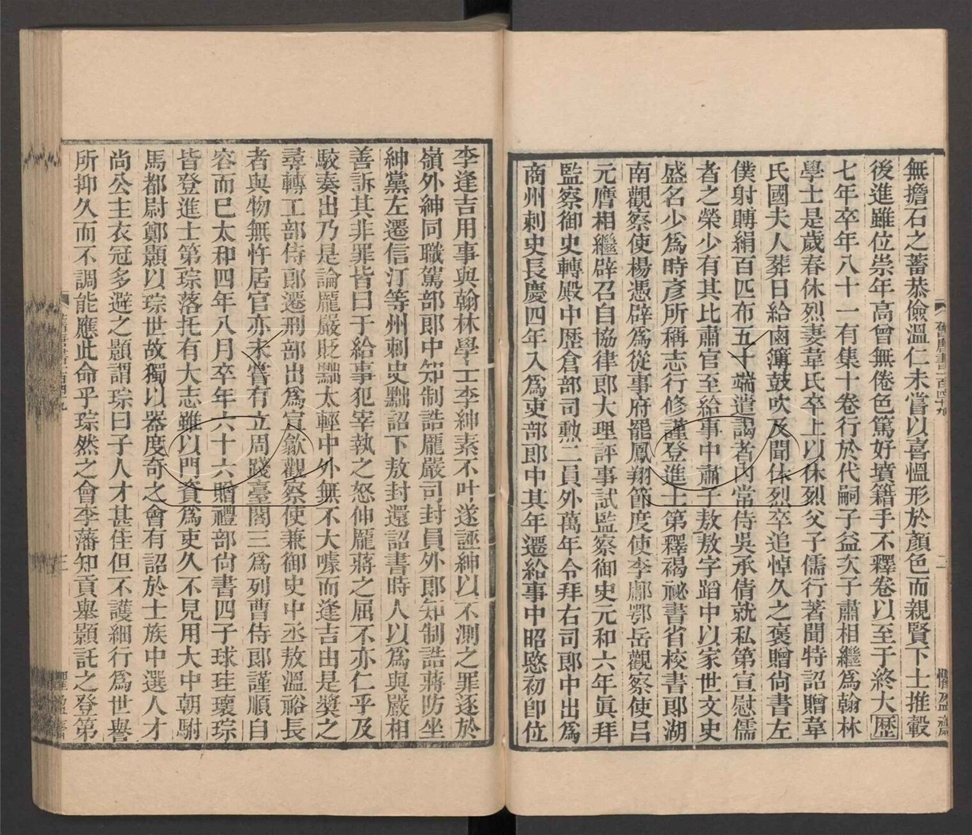 無擔石之蓄恭儉溫仁未嘗以喜慍形於顏色而親賢下士推轂
後進雖位崇年高曾無倦色篤好墳籍手不釋卷以至于終大歷
七年卒年八十一有集十卷行於代嗣子益次子肅相繼為翰林
學士是歲春休烈妻韋氏卒上以休烈父子儒行著聞特詔贈韋
氏國夫人葬日給鹵簿鼓吹及聞休烈卒追悼久之褒贈尚書左
僕射賻絹百匹布五十端遣謁者內常侍吳承倩就私第宣慰儒
者之榮少有其比肅官至給事中肅子敖敖字蹈中以家世文史
盛名少為時彥所稱志行修謹登進士第釋褐祕書省校書郎湖
南觀察使楊憑辟為從事府罷鳳翔節度使李鄘鄂岳觀察使呂
元膺相繼辟召自協律郎大理評事試監察御史元和六年真拜
監察御史轉殿中歷倉部司勲二員外萬年令拜右司郎中出為
商州刺史長慶四年入為吏部郎中其年遷給事中昭愍初卽位
李逢吉用事與翰林學士李紳素不叶遂誣紳以不測之罪逐於
嶺外紳同職駕部郎中知制誥龐嚴司封員外郎知制誥蔣防坐
紳黨左遷信汀等州刺史黜詔下敖封還詔書時人以為與嚴相
善訴其非罪皆曰于給事犯宰執之怒伸龐蔣之屈不亦仁乎及
駮奏出乃是論龐嚴貶黜太輕中外無不大噱而逢吉由是奬之
尋轉工部侍郎遷刑部出為宣歙觀察使兼御史中丞敖溫裕長
者與物無忤居官亦未嘗有立周踐臺閣三為列曹侍郎謹順自
容而已太和四年八月卒年六十六贈禮部尚書四子球珪瓌琮
皆登進士第琮落托有大志雖以門資為吏久不見用大中朝駙
馬都尉鄭顥以琮世故獨以器度奇之會有詔於士族中選人才
尚公主衣冠多避之顥謂琮曰子人才甚佳但不護細行為世譽
所抑久而不調能應此命乎琮然之會李藩知貢舉顥託之登第